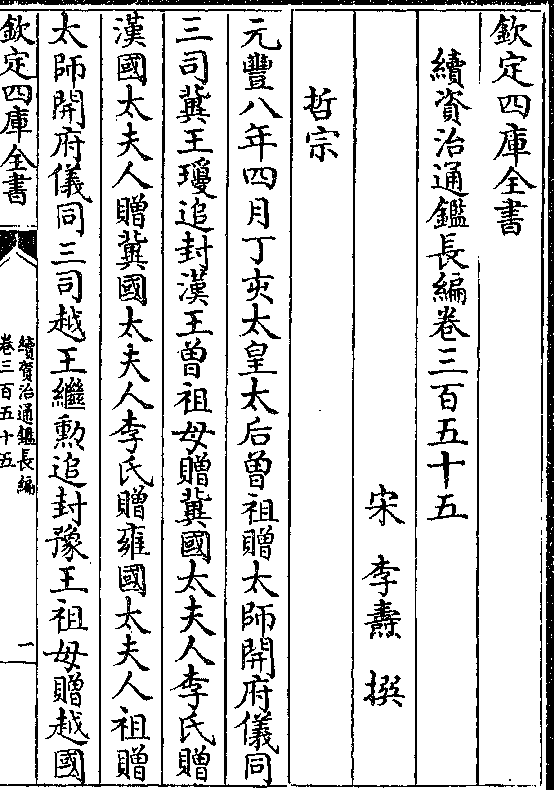 欽定四庫全書
續資治通鑑長編卷三百五十五
宋 李燾 撰
哲宗
元豐八年四月丁亥太皇太后曾祖贈太師開府儀同
三司冀王瓊追封漢王曾祖母贈冀國太夫人李氏贈
漢國太夫人贈冀國太夫人李氏贈雍國太夫人祖贈
太師開府儀同三司越王繼勲追封豫王祖母贈越國
欽定四庫全書
續資治通鑑長編
卷三百五十五
二